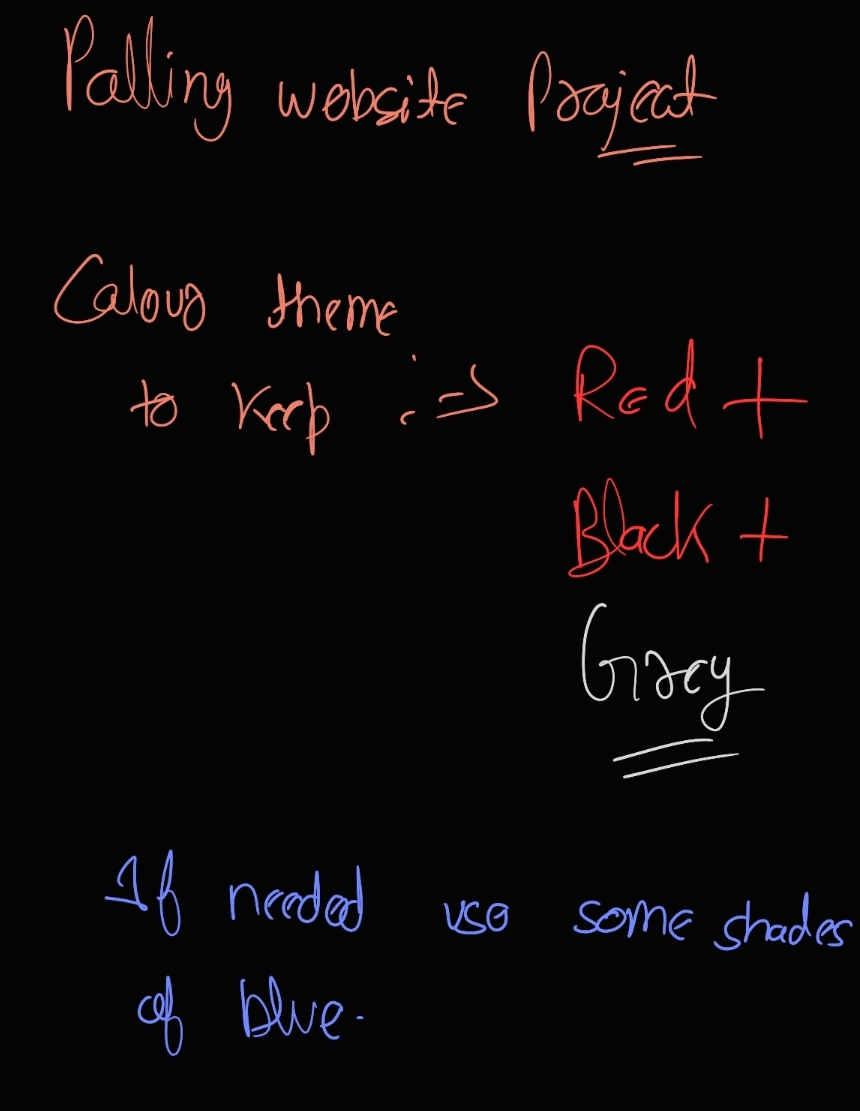 Polling website Project
Colour theme
to keep :→ Red +
Black +
Grey
If needed use some shades
of blue.